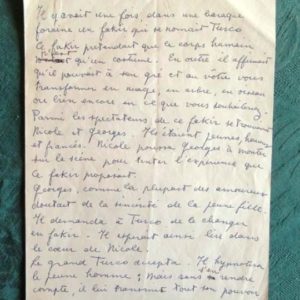 Il y avait une fois, dans une baraque
foraine un fakir qui se nommait Turco
Le fakir prétendait que le corps humain
n'est qu'un costume. En outre il affirmait
qu'il pouvait à son gré et au vôtre vous
transformer en nuage, en arbre, en oiseau
ou bien encore en ce que vous souhaitiez.
Parmi les spectateurs de ce fakir se trouvaient
Nicole et Georges. Ils étaient jeunes, heureux
et fiancés. Nicole poussa Georges à monter
sur la scène pour tenter l'expérience que
le fakir proposait.
Georges, comme la plupart des amoureux
doutait de la sincérité de la jeune fille.
Il demanda à Turco de le changer
en fakir. Il espérait ainsi lire dans
le cœur de Nicole.
Le grand Turco accepta. Il hypnotisa
le jeune homme, mais sans s'en rendre
compte, il lui transmit tout son pouvoir